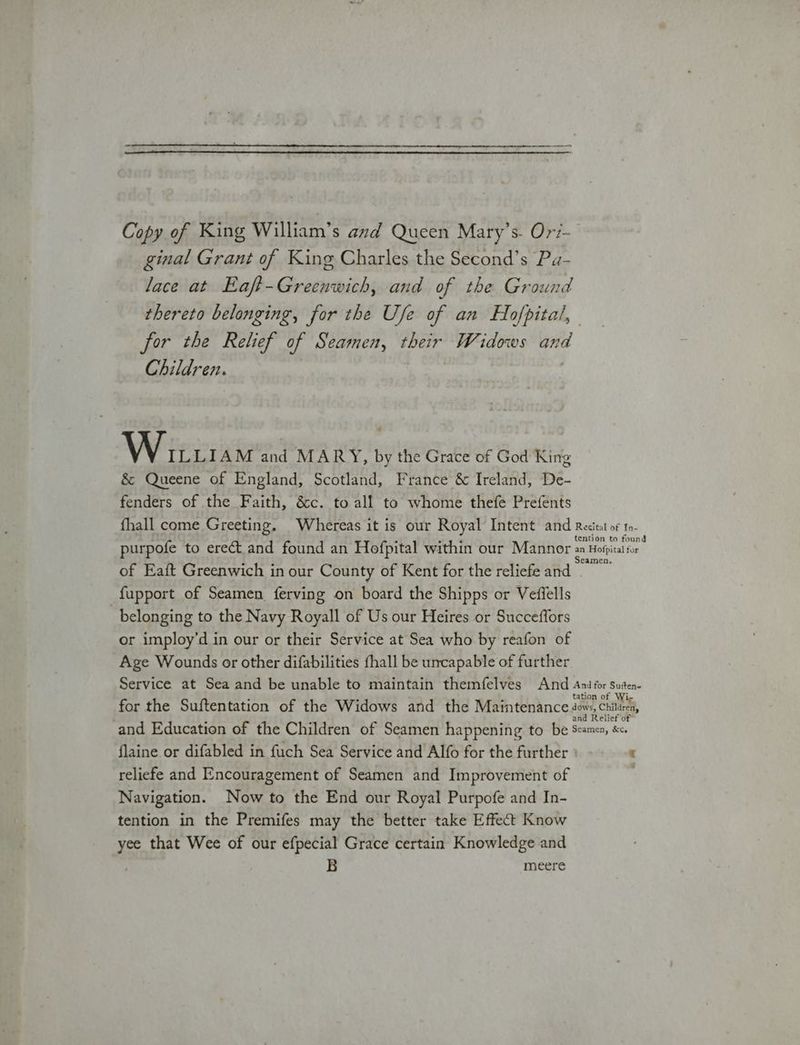 Copy of King William's and Queen Mary's Ori-
ginal Grant of King Charles the Second's Pa-
lace at Eaſt-Greenwich, and of the Ground
thereto belonging, for the Uſe of an Hoſpital,
for the Relief of Seamen, their Widows and
Children.
WILLIAM and MARY, by the Grace of God King
& Queene of England, Scotland, France & Ireland, De-
fenders of the Faith, &c. to all to whome theſe Preſents
ſhall come Greeting. Whereas it is our Royal Intent and
purpoſe to erect and found an Hoſpital within our Mannor
of Eaſt Greenwich in our County of Kent for the reliefe and
ſupport of Seamen ſerving on board the Shipps or Veſſells
belonging to the Navy Royall of Us our Heires or Succeſſors
or imploy'd in our or their Service at Sea who by reaſon of
Age Wounds or other diſabilities ſhall be uncapable of further
Service at Sea and be unable to maintain themſelves And
for the Suſtentation of the Widows and the Maintenance
and Education of the Children of Seamen happening to be
ſlaine or diſabled in ſuch Sea Service and Alſo for the further
reliefe and Encouragement of Seamen and Improvement of
Navigation. Now to the End our Royal Purpoſe and In-
tention in the Premiſes may the better take Effect Know
yee that Wee of our eſpecial Grace certain Knowledge and
B meere
Recital of In-
tention to found
an Hoſpital for
Seamen.
And for Suſten-
tation of Wi-
dows, Children,
and Relief of
Seamen, &c.